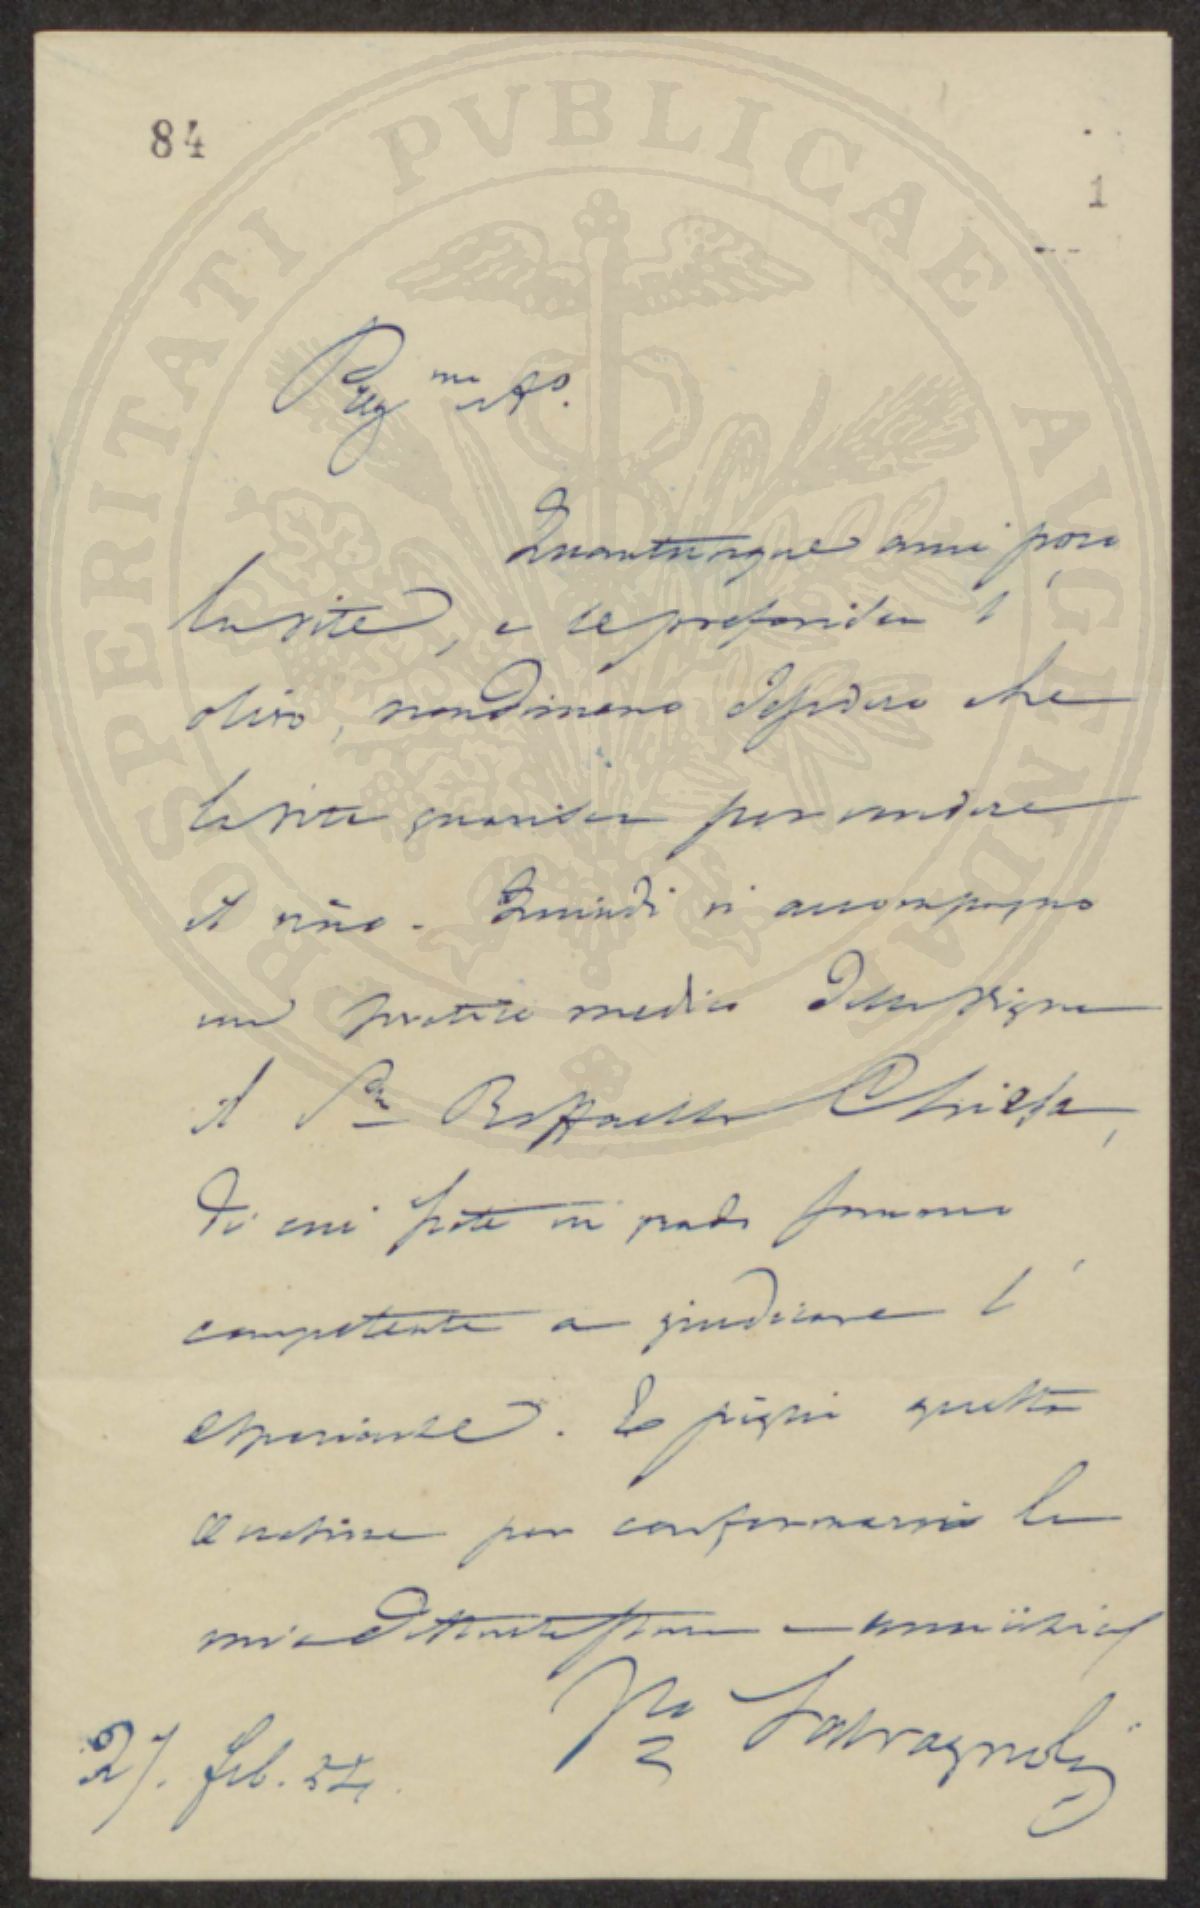 84
1
PROSPERITATI PVBLICAE AVGENDAE
Preg.mo Ao.
Quantunque ami poco
la vite, e le preferisca l'
olivo, nondimeno desidero che
la vite guarisca per vendere
il vino. Quindi vi accompagno
un medico della vigna
il Sr Raffaello Chiesa,
di cui siete in grado
competente a giudicare l'
esperienze. E pigli questa
occasione per confermarvi la
mia e amicizia
Vo Salvagnoli
27. feb. 54.